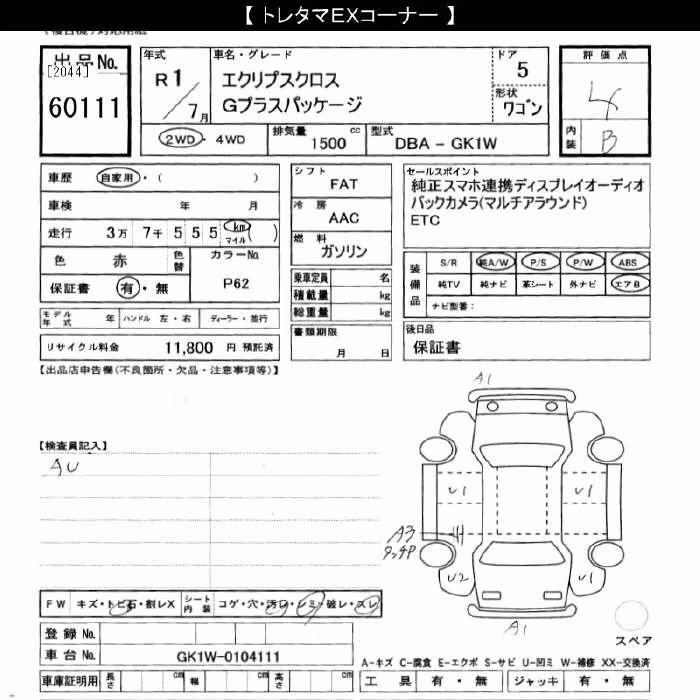 【 トレタマEXコーナー 】
出品No.
[2044]
60111
年式
R 1
7 月
車名・グレード
エクリプスクロス
Gプラスパッケージ
ドア
5
形状
ワゴン
評価点
4
内装
B
2WD・4WD
排気量
1500 cc
型式
DBA - GK1W
車歴 自家用・( )
車検 年 月
走行 3万 7千 5 5 5 ( km マイル )
色 赤
色替
カラーNo.
P62
保証書 有・無
シフト
FAT
冷房
AAC
燃料
ガソリン
乗車定員 名
積載量 kg
総重量 kg
セールスポイント
純正スマホ連携ディスプレイオーディオ
バックカメラ(マルチアラウンド)
ETC
装備品
S/R 純A/W P/S P/W ABS
純TV 純ナビ 革シート 外ナビ エアB
ナビ型番:
モデル年式 年 ハンドル 左・右 ディーラー・並行
リサイクル料金 11,800 円 預託済
書類期限
月 日
後日品
保証書
【出品店申告欄(不良箇所・欠品・注意事項等)】
【検査員記入】
AU
A1
U1 U1
A3
タッチP
U2 U1
A1
スペア
FW キズ・トビ石・割レX シート内装 コゲ・穴・汚レ・シミ・破レ・スレ
登録No.
車台No. GK1W-0104111
車庫証明用 長さ cm 幅 cm 高さ cm
A-キズ C-腐食 E-エクボ S-サビ U-凹ミ W-補修 XX-交換済
工具 有・無 ジャッキ 有・無